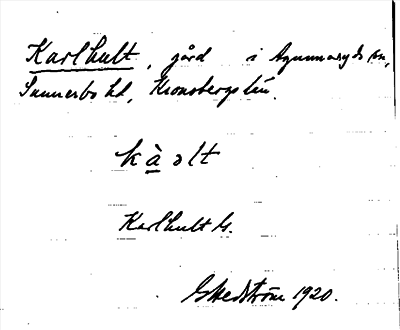 Karlhult, gård i Agunnaryds sn,
Sunnerbo hd, Kronobergs län.
kàolt
Karlhult G.
G Hedström 1920.